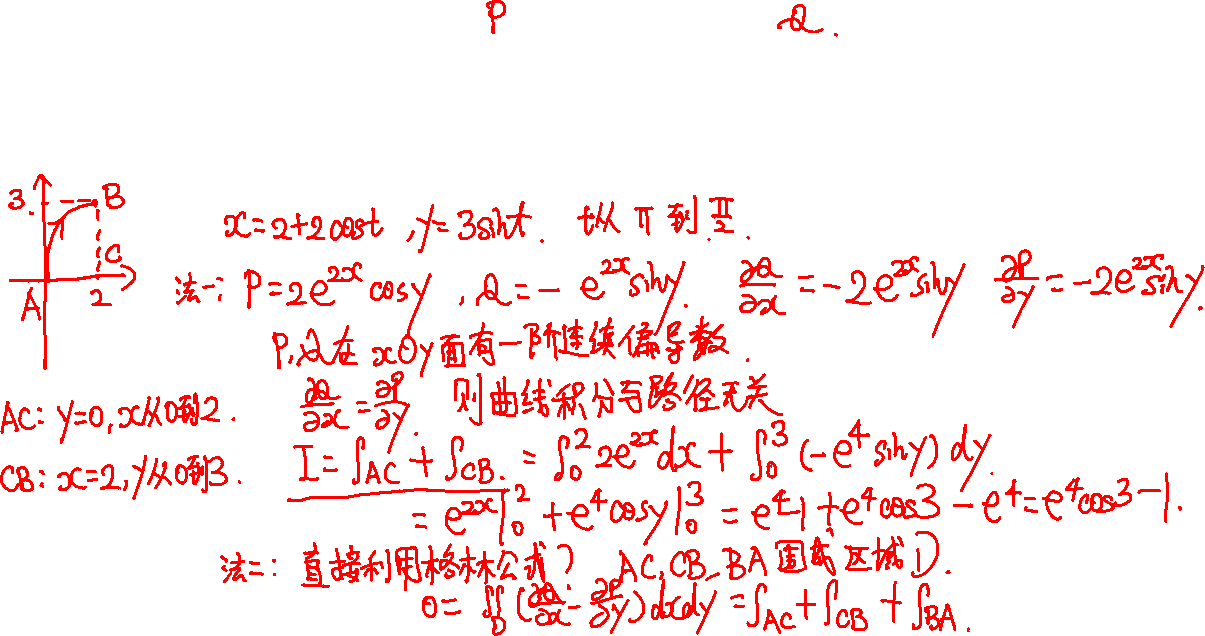 P Q.
3 B
x=2+2cost, y=3sint. t从π到π/2.
C
A 2
法一: P=2e^{2x}cosy, Q=-e^{2x}siny. ∂Q/∂x=-2e^{2x}siny ∂P/∂y=-2e^{2x}siny.
P,Q在xOy面有一阶连续偏导数.
AC: y=0, x从0到2. ∂Q/∂x=∂P/∂y. 则曲线积分与路径无关
CB: x=2, y从0到3. I=∫_{AC}+∫_{CB}.=∫_0^2 2e^{2x}dx+∫_0^3(-e^4siny)dy.
=e^{2x}|_0^2+e^4cosy|_0^3=e^4-1+e^4cos3-e^4=e^4cos3-1.
法二: 直接利用格林公式) AC,CB,BA围成区域D.
0=∬_D(∂Q/∂x-∂P/∂y)dxdy=∫_{AC}+∫_{CB}+∫_{BA}.